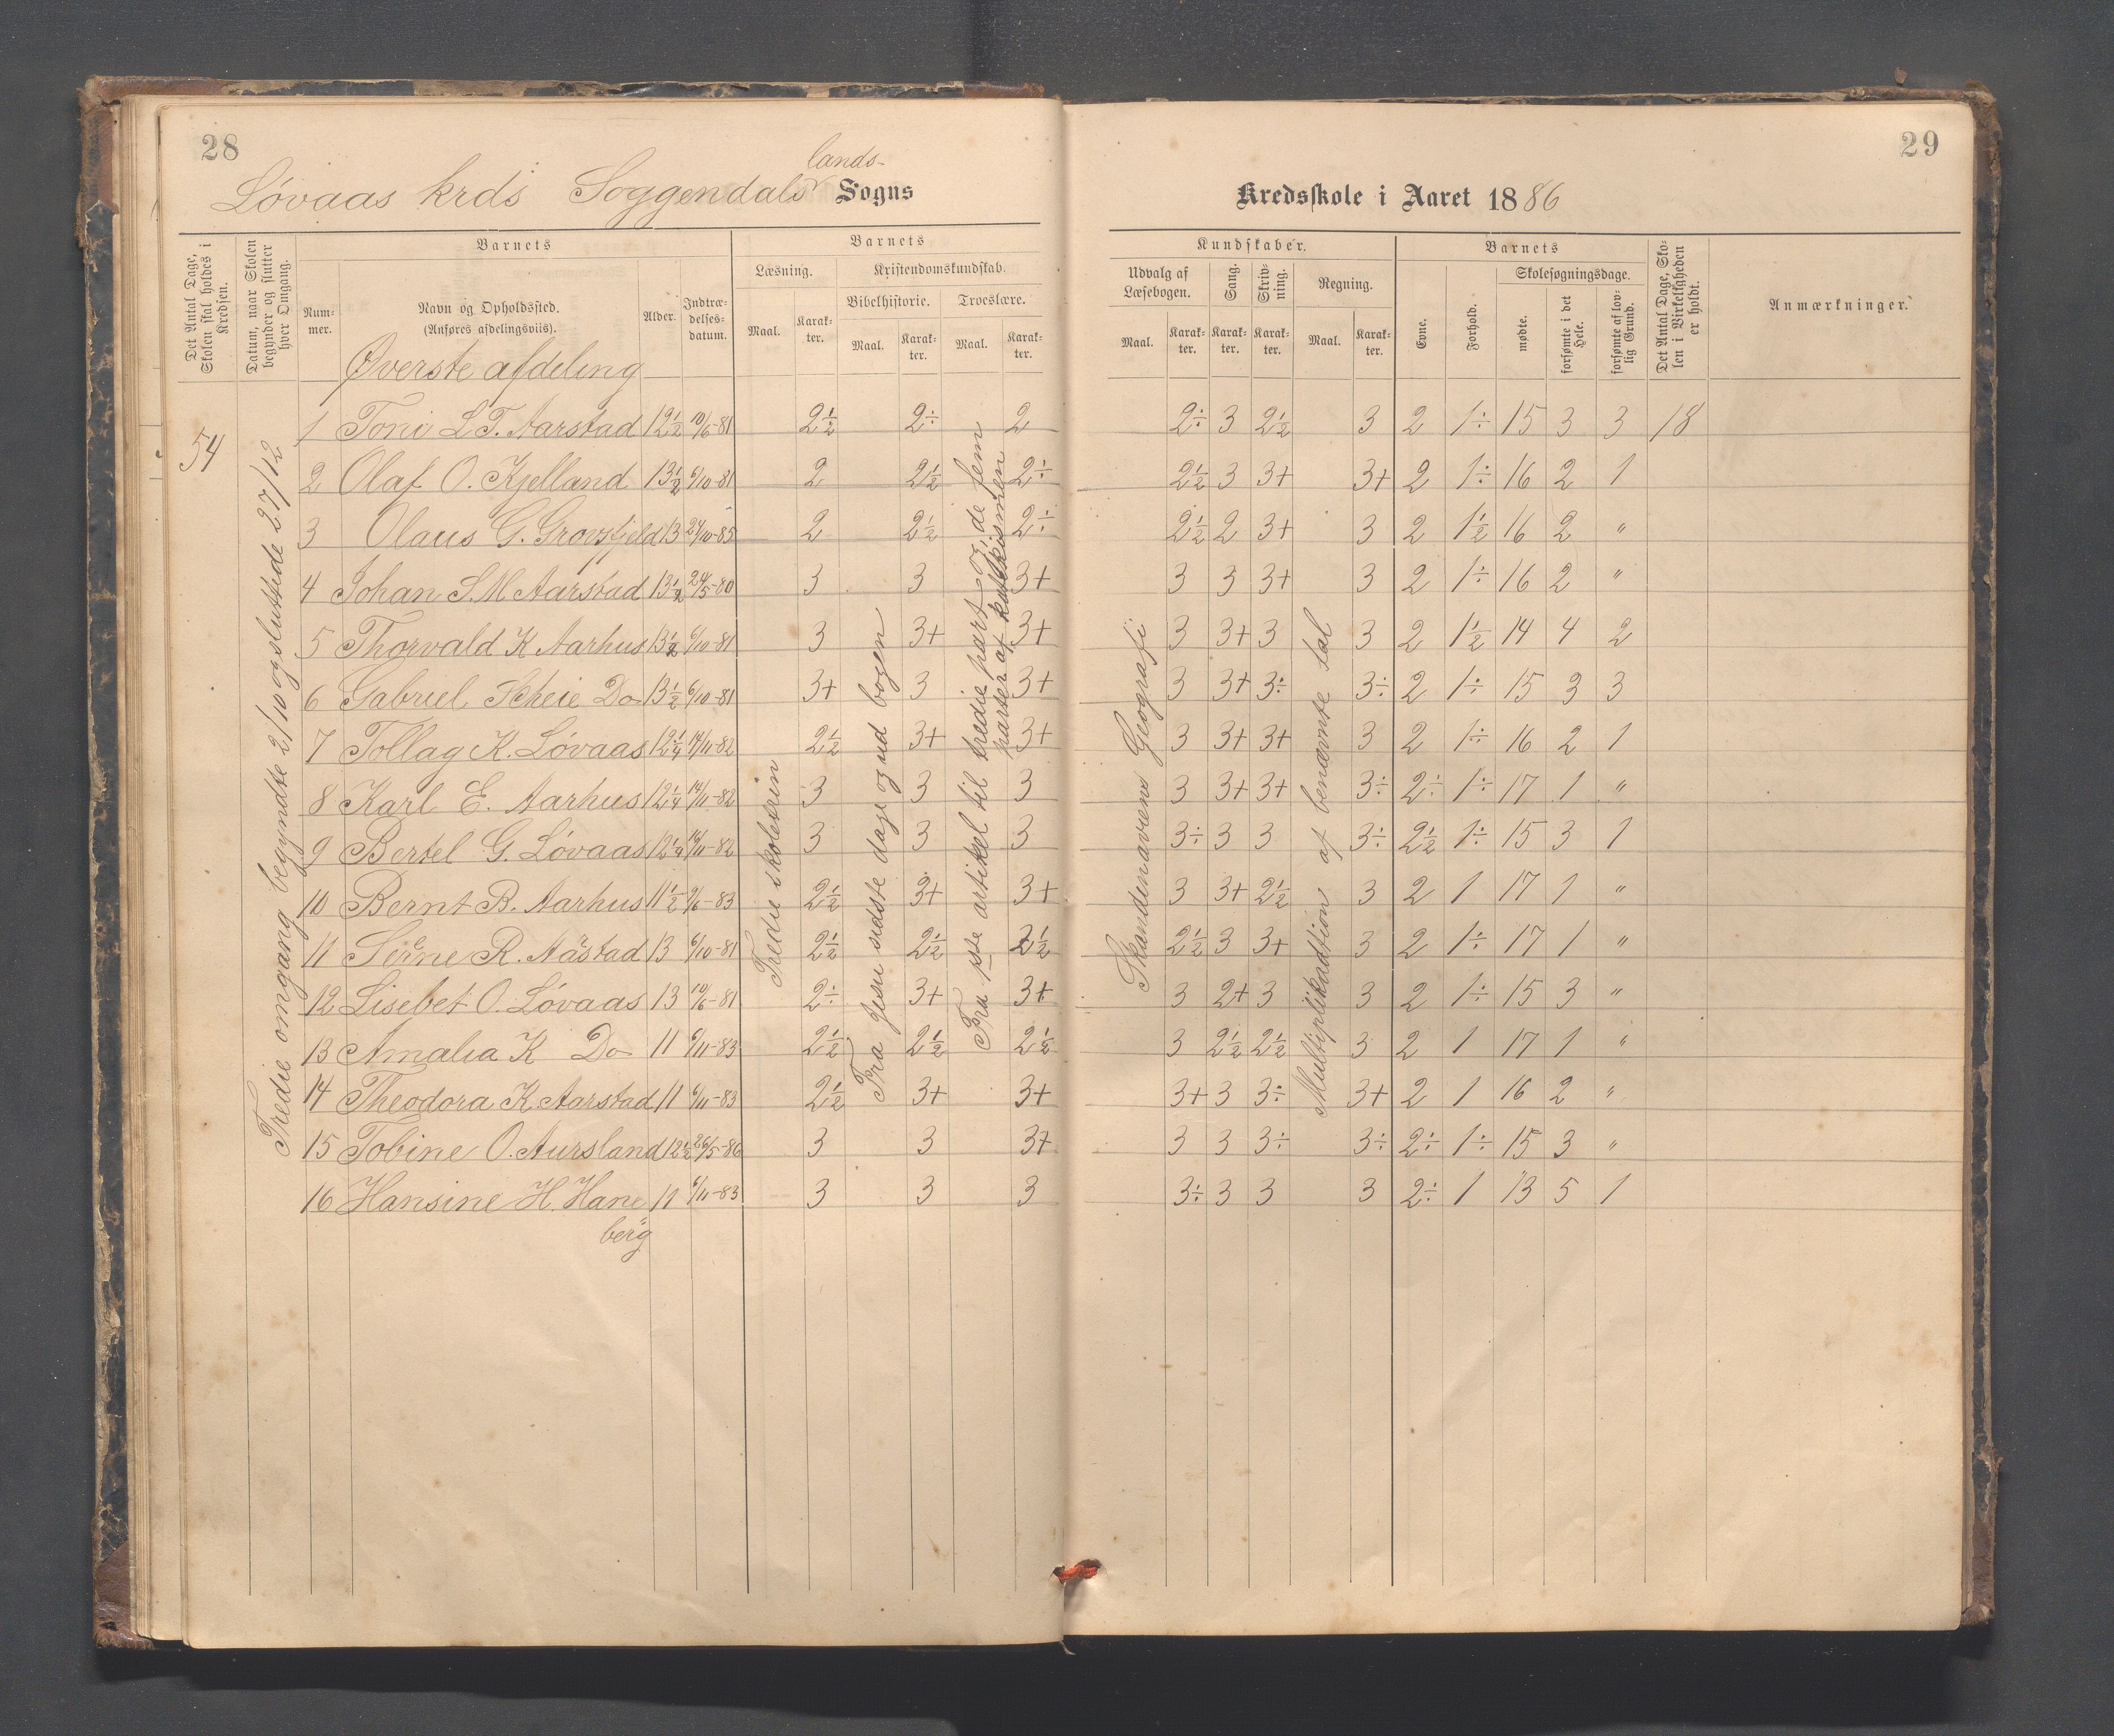 28
29
lands-
Løvaas krds Soggendals Sogns
Kredsskole i Aaret 1886
Det Antal Dage, Skolen skal holdes i Kredsen.
Datum, naar Skolen begynder og slutter hver Omgang.
Barnets
Nummer.
Navn og Opholdssted.
(Anføres afdelingsviis).
Alder.
Indtrædelsesdatum.
Barnets
Læsning.
Maal.
Karakter.
Kristendomskundskab.
Bibelhistorie.
Maal.
Karakter.
Troeslære.
Maal.
Karakter.
Kundskaber.
Udvalg af Læsebogen.
Maal.
Karakter.
Sang.
Karakter.
Skrivning.
Karakter.
Regning.
Maal.
Karakter.
Barnets
Evne.
Forhold.
Skolesøgningsdage.
mødte.
forsømte i det Hele.
forsømte af lovlig Grund.
Det Antal Dage, Skolen i Virkeligheden er holdt.
Anmærkninger.
Øverste afdeling
54
Tredie omgang begyndte 2/10 og sluttede 27/12
Tredie skoletrin
Fra Jesu sidste dage og ud bogen
Fra 1ste artikel til tredie part og de fem
parter af katekismen
Skandinaviens Geografi
Multiplikadtion af benævnte tal
1 Toni L T. Aarstad 12½ 10/6-81 2½ 2÷ 2 2÷ 3 2½ 3 2 1÷ 15 3 3 18
2 Olaf O. Kjelland 13½ 6/10-81 2 2½ 2÷ 2½ 3 3+ 3+ 2 1÷ 16 2 1
3 Olaus G. Grovsfjeld 13 24/10-85 2 2½ 2÷ 2½ 2 3+ 3 2 1½ 16 2 "
4 Johan S. M Aarstad 13½ 24/5-80 3 3 3+ 3 3 3+ 3 2 1÷ 16 2 "
5 Thorvald K Aarhus 13½ 6/10-81 3 3+ 3+ 3 3+ 3 3 2 1½ 14 4 2
6 Gabriel Scheie Do 13½ 6/10-81 3+ 3 3+ 3 3+ 3÷ 3÷ 2 1÷ 15 3 3
7 Tollag K. Løvaas 12¼ 14/11-82 2½ 3+ 3+ 3 3+ 3+ 3 2 1÷ 16 2 1
8 Karl E. Aarhus 12¼ 14/11-82 3 3 3 3 3+ 3+ 3÷ 2÷ 1÷ 17 1 "
9 Bertel G. Løvaas 12¼ 14/11-82 3 3 3 3÷ 3 3 3÷ 2½ 1÷ 15 3 1
10 Bernt B. Aarhus 11½ 9/6-83 2½ 3+ 3+ 3 3+ 2½ 3 2 1 17 1 "
11 Serine R. Aastad 13 6/10-81 2½ 2½ 2½ 2½ 3 3+ 3 2 1÷ 17 1 "
12 Lisebet O. Løvaas 13 10/6-81 2÷ 3+ 3+ 3 2+ 3 3 2 1÷ 15 3 "
13 Amalia K Do 11 6/11-83 2½ 2½ 2½ 3 2½ 2½ 3 2 1 17 1 "
14 Theodora K Aarstad 11 6/11-83 2½ 3+ 3+ 3+ 3 3÷ 3+ 2 1 16 2 "
15 Tobine O. Aursland 12½ 26/5-86 3 3 3+ 3 3 3÷ 3÷ 2÷ 1÷ 15 3 "
16 Hansine H. Hane 11 6/11-83 3 3 3 3÷ 3 3 3 2÷ 1 13 5 1
berg